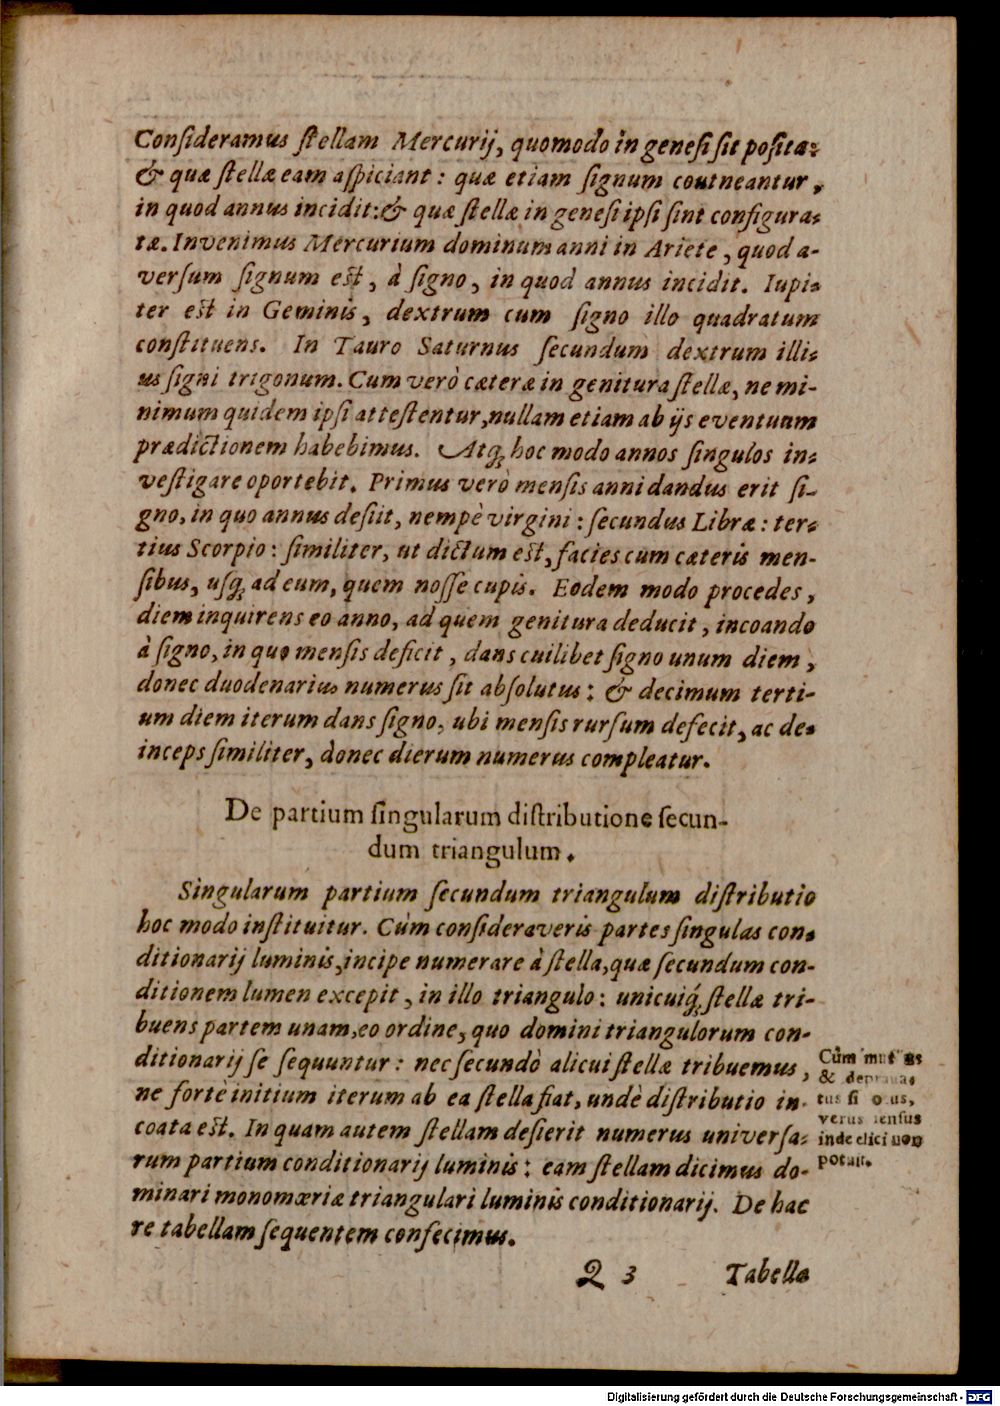 Conſideramus ſtellam Mercurij, quomodo in geneſi ſit poſita:
& quæ ſtellæ eam aſpiciant: quæ etiam ſignum coutneantur,
in quod annus incidit: & quæ ſtellæ in geneſi ipſi ſint configura-
tæ. Invenimus Mercurium dominum anni in Ariete, quod a-
verſum ſignum eſt, à ſigno, in quod annus incidit. Iupi-
ter eſt in Geminis, dextrum cum ſigno illo quadratum
conſtituens. In Tauro Saturnus ſecundum dextrum illi-
us ſigni trigonum. Cum verò cæteræ in genitura ſtellæ, ne mi-
nimum quidem ipſi atteſtentur, nullam etiam ab ijs eventuum
prædictionem habebimus. Atq; hoc modo annos ſingulos in-
veſtigare oportebit. Primus verò menſis anni dandus erit ſi-
gno, in quo annus deſiit, nempè virgini: ſecundus Libræ: ter-
tius Scorpio: ſimiliter, ut dictum eſt, facies cum cæteris men-
ſibus, uſq; ad eum, quem noſſe cupis. Eodem modo procedes,
diem inquirens eo anno, ad quem genitura deducit, incoando
à ſigno, in quo menſis deficit, dans cuilibet ſigno unum diem,
donec duodenarius numerus ſit abſolutus: & decimum terti-
um diem iterum dans ſigno, ubi menſis rurſum defecit, ac de-
inceps ſimiliter, donec dierum numerus compleatur.
De partium ſingularum diſtributione ſecun-
dum triangulum.
Singularum partium ſecundum triangulum diſtributio
hoc modo inſtituitur. Cùm conſideraveris partes ſingulas con-
ditionarij luminis, incipe numerare à ſtella, quæ ſecundum con-
ditionem lumen excepit, in illo triangulo: unicuiq; ſtellæ tri-
buens partem unam, eo ordine, quo domini triangulorum con-
ditionarij ſe ſequuntur: nec ſecundò alicui ſtellæ tribuemus,
ne fortè initium iterum ab ea ſtella fiat, undè diſtributio in-
coata eſt. In quam autem ſtellam deſierit numerus univerſa-
rum partium conditionarij luminis: eam ſtellam dicimus do-
minari monomœriæ triangulari luminis conditionarij. De hac
re tabellam ſequentem confecimus.
Cùm
&
tus ſi
verus ſenſus
inde elici non
potuit.
Q 3 Tabella
Digitalisierung gefördert durch die Deutsche Forschungsgemeinschaft - DFG